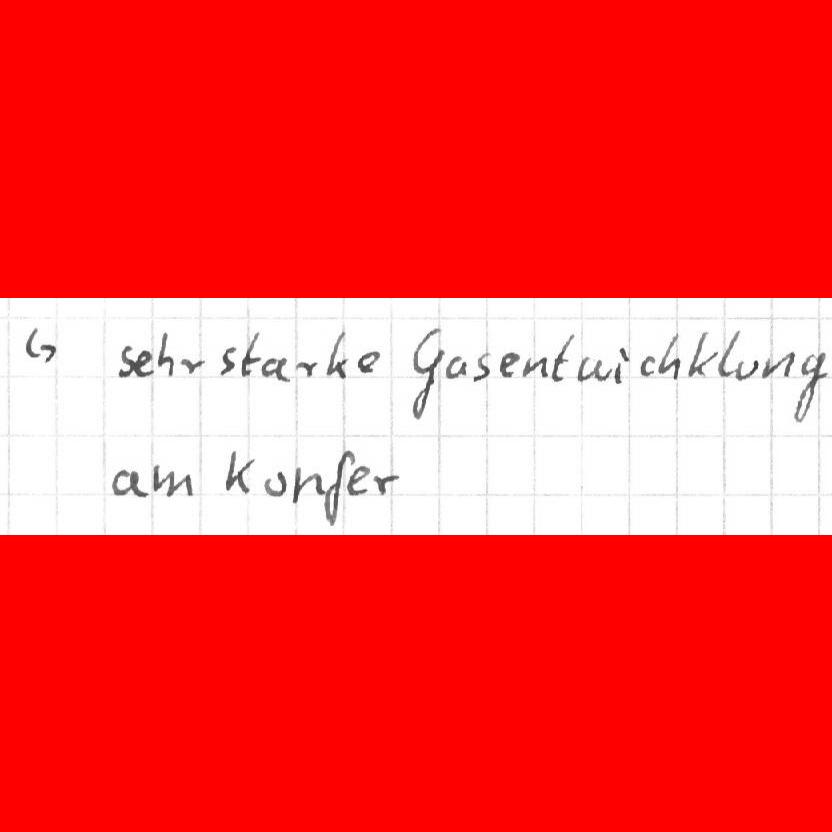 ↳ sehr starke Gasentwichklung
am Kupfer